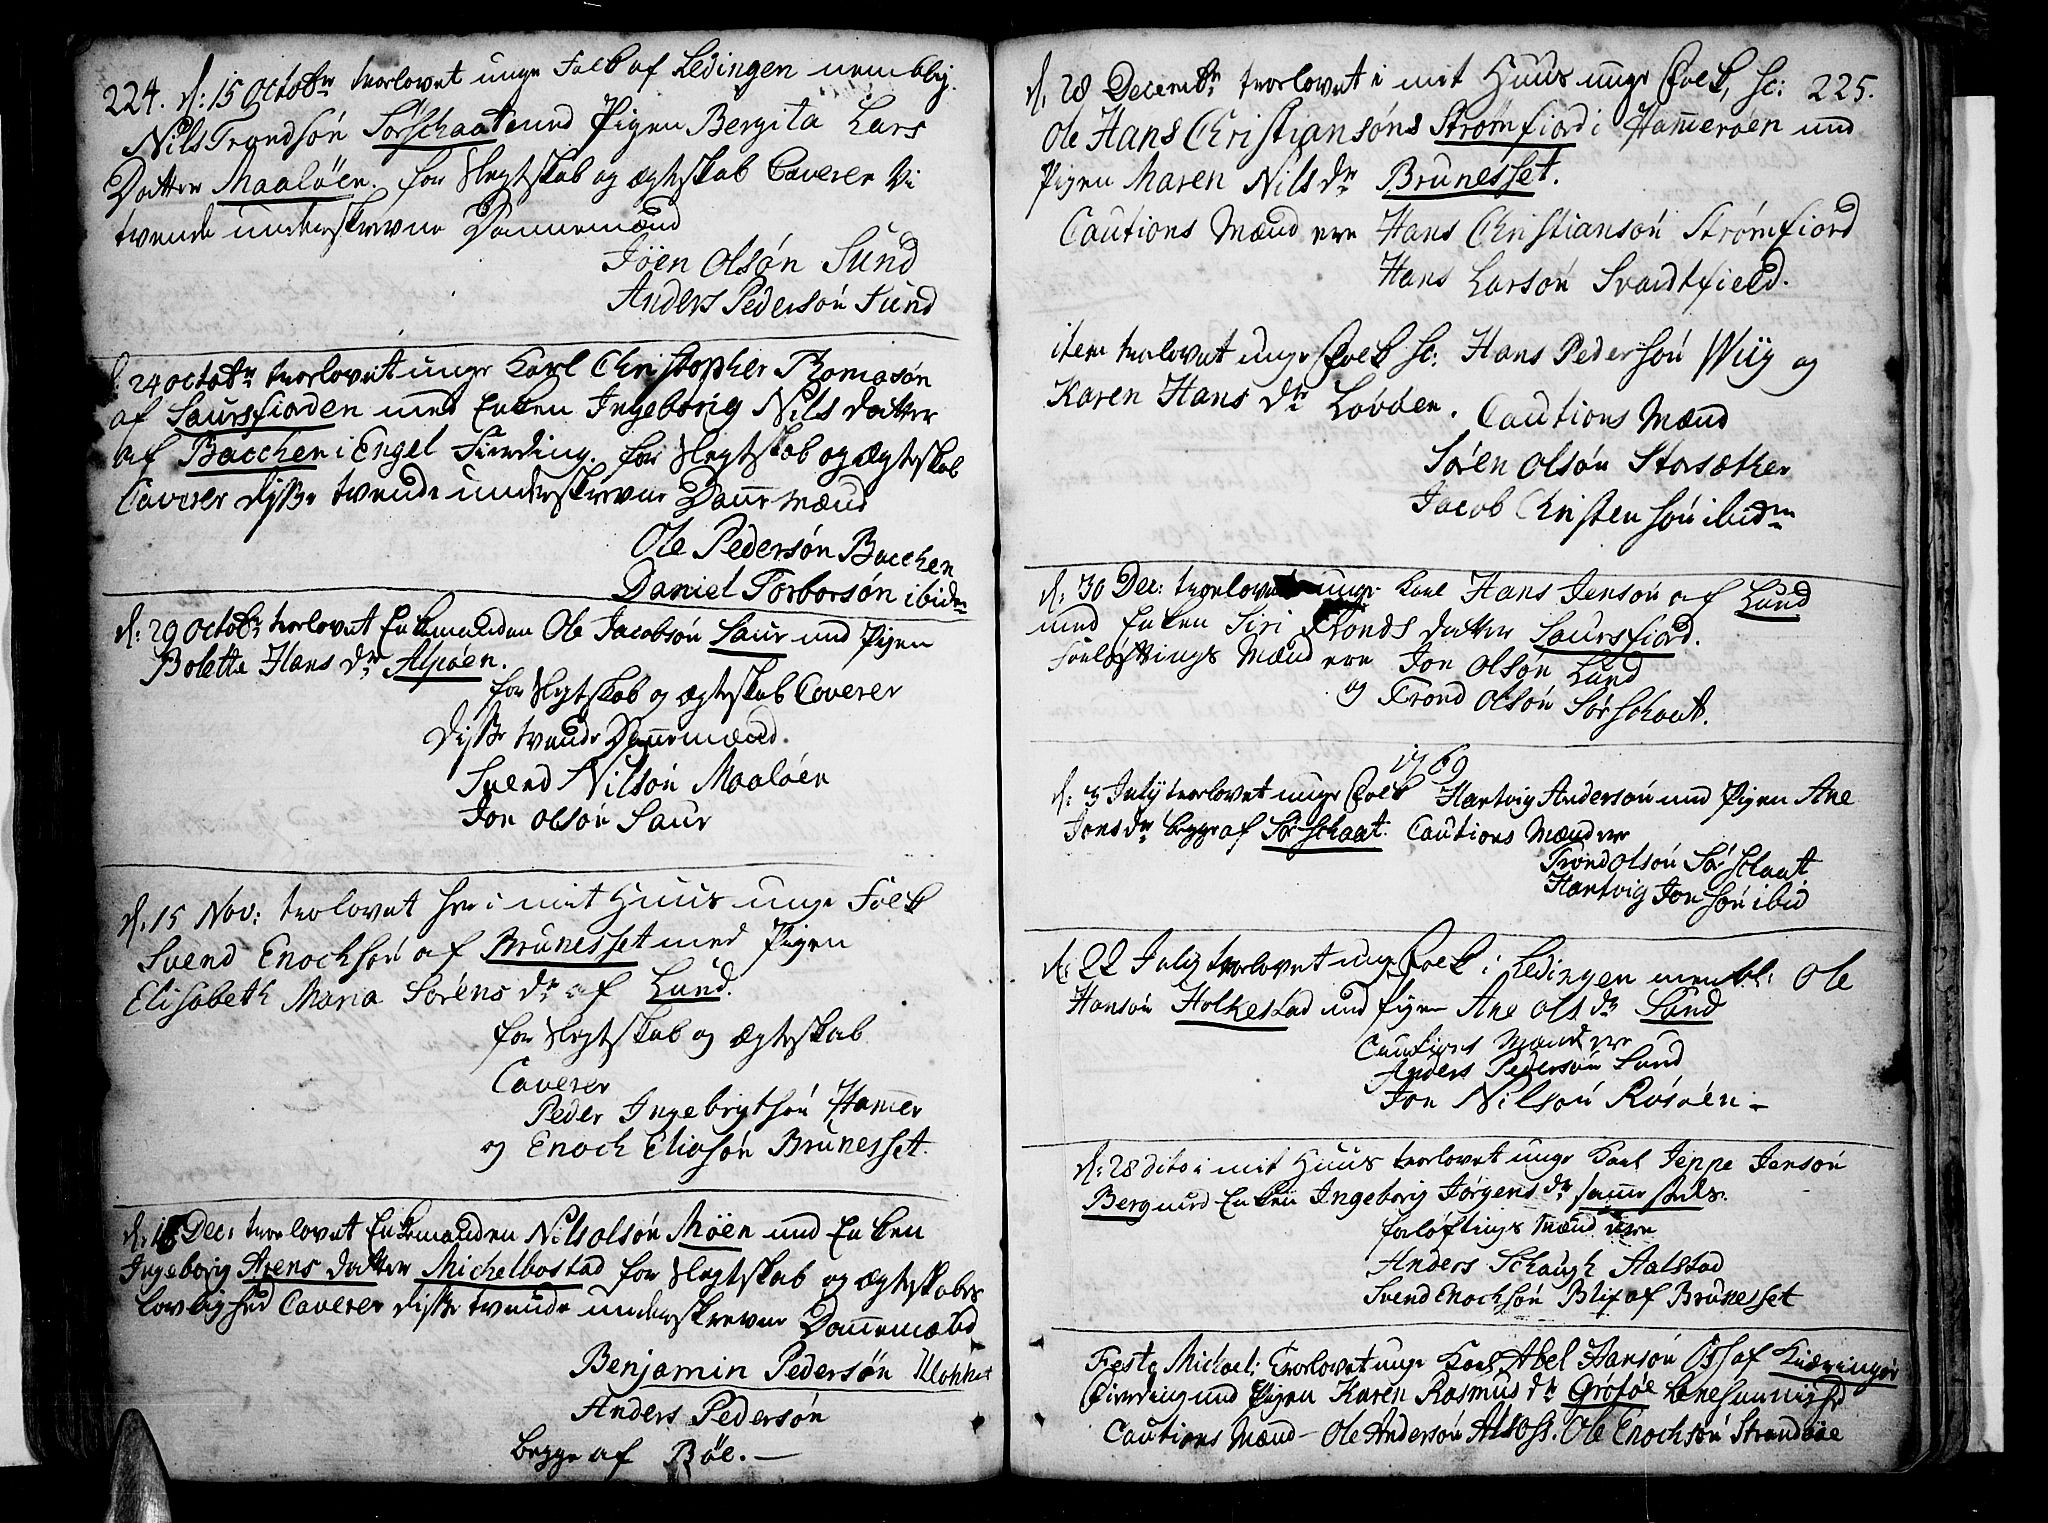 224. d: 15 Octobr trolovet unge Folk af Lødingen nemblig.
Nils Trondsøn Sørschaat med Pigen Bergita Lars
Datter Maaløen. for slegtskab og ægteskab Caverer Vi
tvende underskrevne Dannemænd
Jöen Olsøn Sund
Anders Pedersøn Sund
d. 24 octobr trolovet unge Karl Christopher Thomasøn
af Saursfiorden med Enken Ingeborig Nils datter
af Bacchen i Engel Fierding. for Slegtskab og ægteskab
Caverer disse tvende underskrevne Danne Mænd
Ole Pedersøn Bacchen
Daniel Torborsøn ibidm
d: 29 octobr trolovet Enkemanden Ole Jacobsøn Saur med Pigen
Bolette Hans dr Alpøen.
for Slegtskab og ægteskab Caverer
disse tvende Dannemænd.
Svend Nilsøn Maaløen
Jon olsøn Saur
d: 15 Nov: trolovet her i mit Huus unge Folk
Svend Enochsøn af Brunesset med Pigen
Elisabeth Maria Sørens dr af Lund.
for Slegtskab og Ægteskab
Caverer
Peder Ingebrigtsøn Hamer
og Enoch Eliasøn Brunesset.
Dec: trolovet Enkemanden Nils olsøn Møen med Enken
Ingeborig Arens datter Michelbostad for Slegtskab og ægteskabs
lovlighed Caverer disse tvende underskrevne Dannemænd
Benjamin Pedersøn Klokker
Anders Pedersøn
begge af Böe. —
d. 28 Decembr trolovet i mit Huus unge Folk, sc: 225.
Ole Hans Christiansøns Strømfiord i Hammerøen med
Pigen Maren Nils dr Brunesset.
Cautions Mænd ere Hans Christiansøn Strømfiord
Hans Larsøn Svardtfield.
item trolovet unge Folk sc: Hans Pedersøn Wiig og
Karen Hans dr Løvøen. Cautions Mænd
Sören Olsøn Storsæther
Jacob Christensøn ibidm
d: 30 Dec: trolovet unge Karl Hans Jensøn af Lund
med Enken Siri Tronds datter Saursfiord.
Forløftnings Mænd ere Jon Olsøn Lund
og Trond Olsøn Sørschaat.
1769
d: 3 July trolovet unge Folk Hartvig Andersøn med Pigen Ane
Jons dr begge af Sørschaat. Cautions Mænd ere
Trond olsøn Sørschaat
Hartvig Jonsøn ibid
d: 22 July trolovet unge Folk i Lødingen nembl: Ole
Hansøn Holkestad med Pigen Ane Ols dr Sund
Cautions Mænd ere
Anders Pedersøn Sund
Jon Nilsøn Rosøen —
d: 28 dito i mit Huus trolovet unge Karl Jeppe Jensøn
Berg med Enken Ingeborig Jørgens dr samme steds.
forløftings Mænd ere
Anders Schaugh Aalstad
Svend Enochsøn af Brunesset
Festo Michael: Trolovet unge Karl Abel Hansøn Oss af Kieringøe
Fierding med Pigen Karen Rasmus dr Grøtøe
Cautions Mænd — Ole Andersøn Ole Enochsøn Strandøe